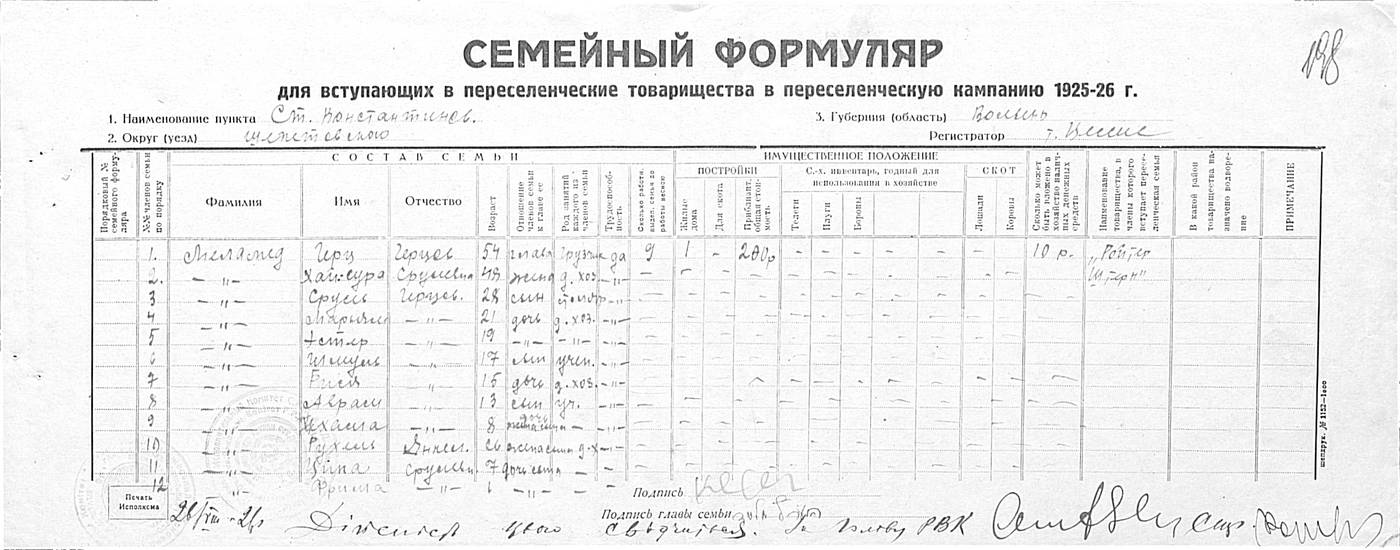 198
СЕМЕЙНЫЙ ФОРМУЛЯР
для вступающих в переселенческие товарищества в переселенческую кампанию 1925-26 г.
1. Наименование пункта Ст. Константинов. 3. Губерния (область) Волынь
2. Округ (уезд) Шепетовского Регистратор т.
СОСТАВ СЕМЬИ ИМУЩЕСТВЕННОЕ ПОЛОЖЕНИЕ
ПОСТРОЙКИ С.-х. инвентарь, годный для использования в хозяйстве СКОТ
Порядковый № семейного формуляра №№ членов семьи по порядку Фамилия Имя Отчество Возраст Отношение членов семьи к главе ее Род занятий каждого из членов семьи Трудоспособность Сколько работн. выдел. семья до работы весною Жилые дома Для скота Приблизит. общая стоимость Телеги Плуги Бороны Лошади Коровы Сколько может быть вложено в хозяйство наличных денежных средств Наименование товарищества, в члены которого вступает переселенческая семья В какой район товарищества назначено водворение ПРИМЕЧАНИЕ
1. Меламед Герц Герцов 54 глава грузчик да 9 1 - 200р 10 р. „Ройтер
2. —„— Хай-сура Срулевна 48 жена д. хоз. -„- Штерн"
3 —„— Сруль Герцов. 28 сын столяр -„-
4 —„— Марьям —„— 21 дочь д. хоз. -„-
5 —„— Эстер —„— 19 -„- -„- -„-
6 —„— Шмуль —„— 17 сын учен. -„-
7 —„— Рися —„— 15 дочь д. хоз. -„-
8 —„— Аврам —„— 13 сын уч. -„-
9 —„— —„— 8 дочь —
10 —„— Рухель Янкел. 26 жена сына д. х -„-
11 —„— Ципа Срулевн. 7 дочь сына —
12 „ Фрима —„— —„— —
Печать Исполкома
Подпись
Подпись главы семьи
Голову РВК
шепарук. № 1152—1000